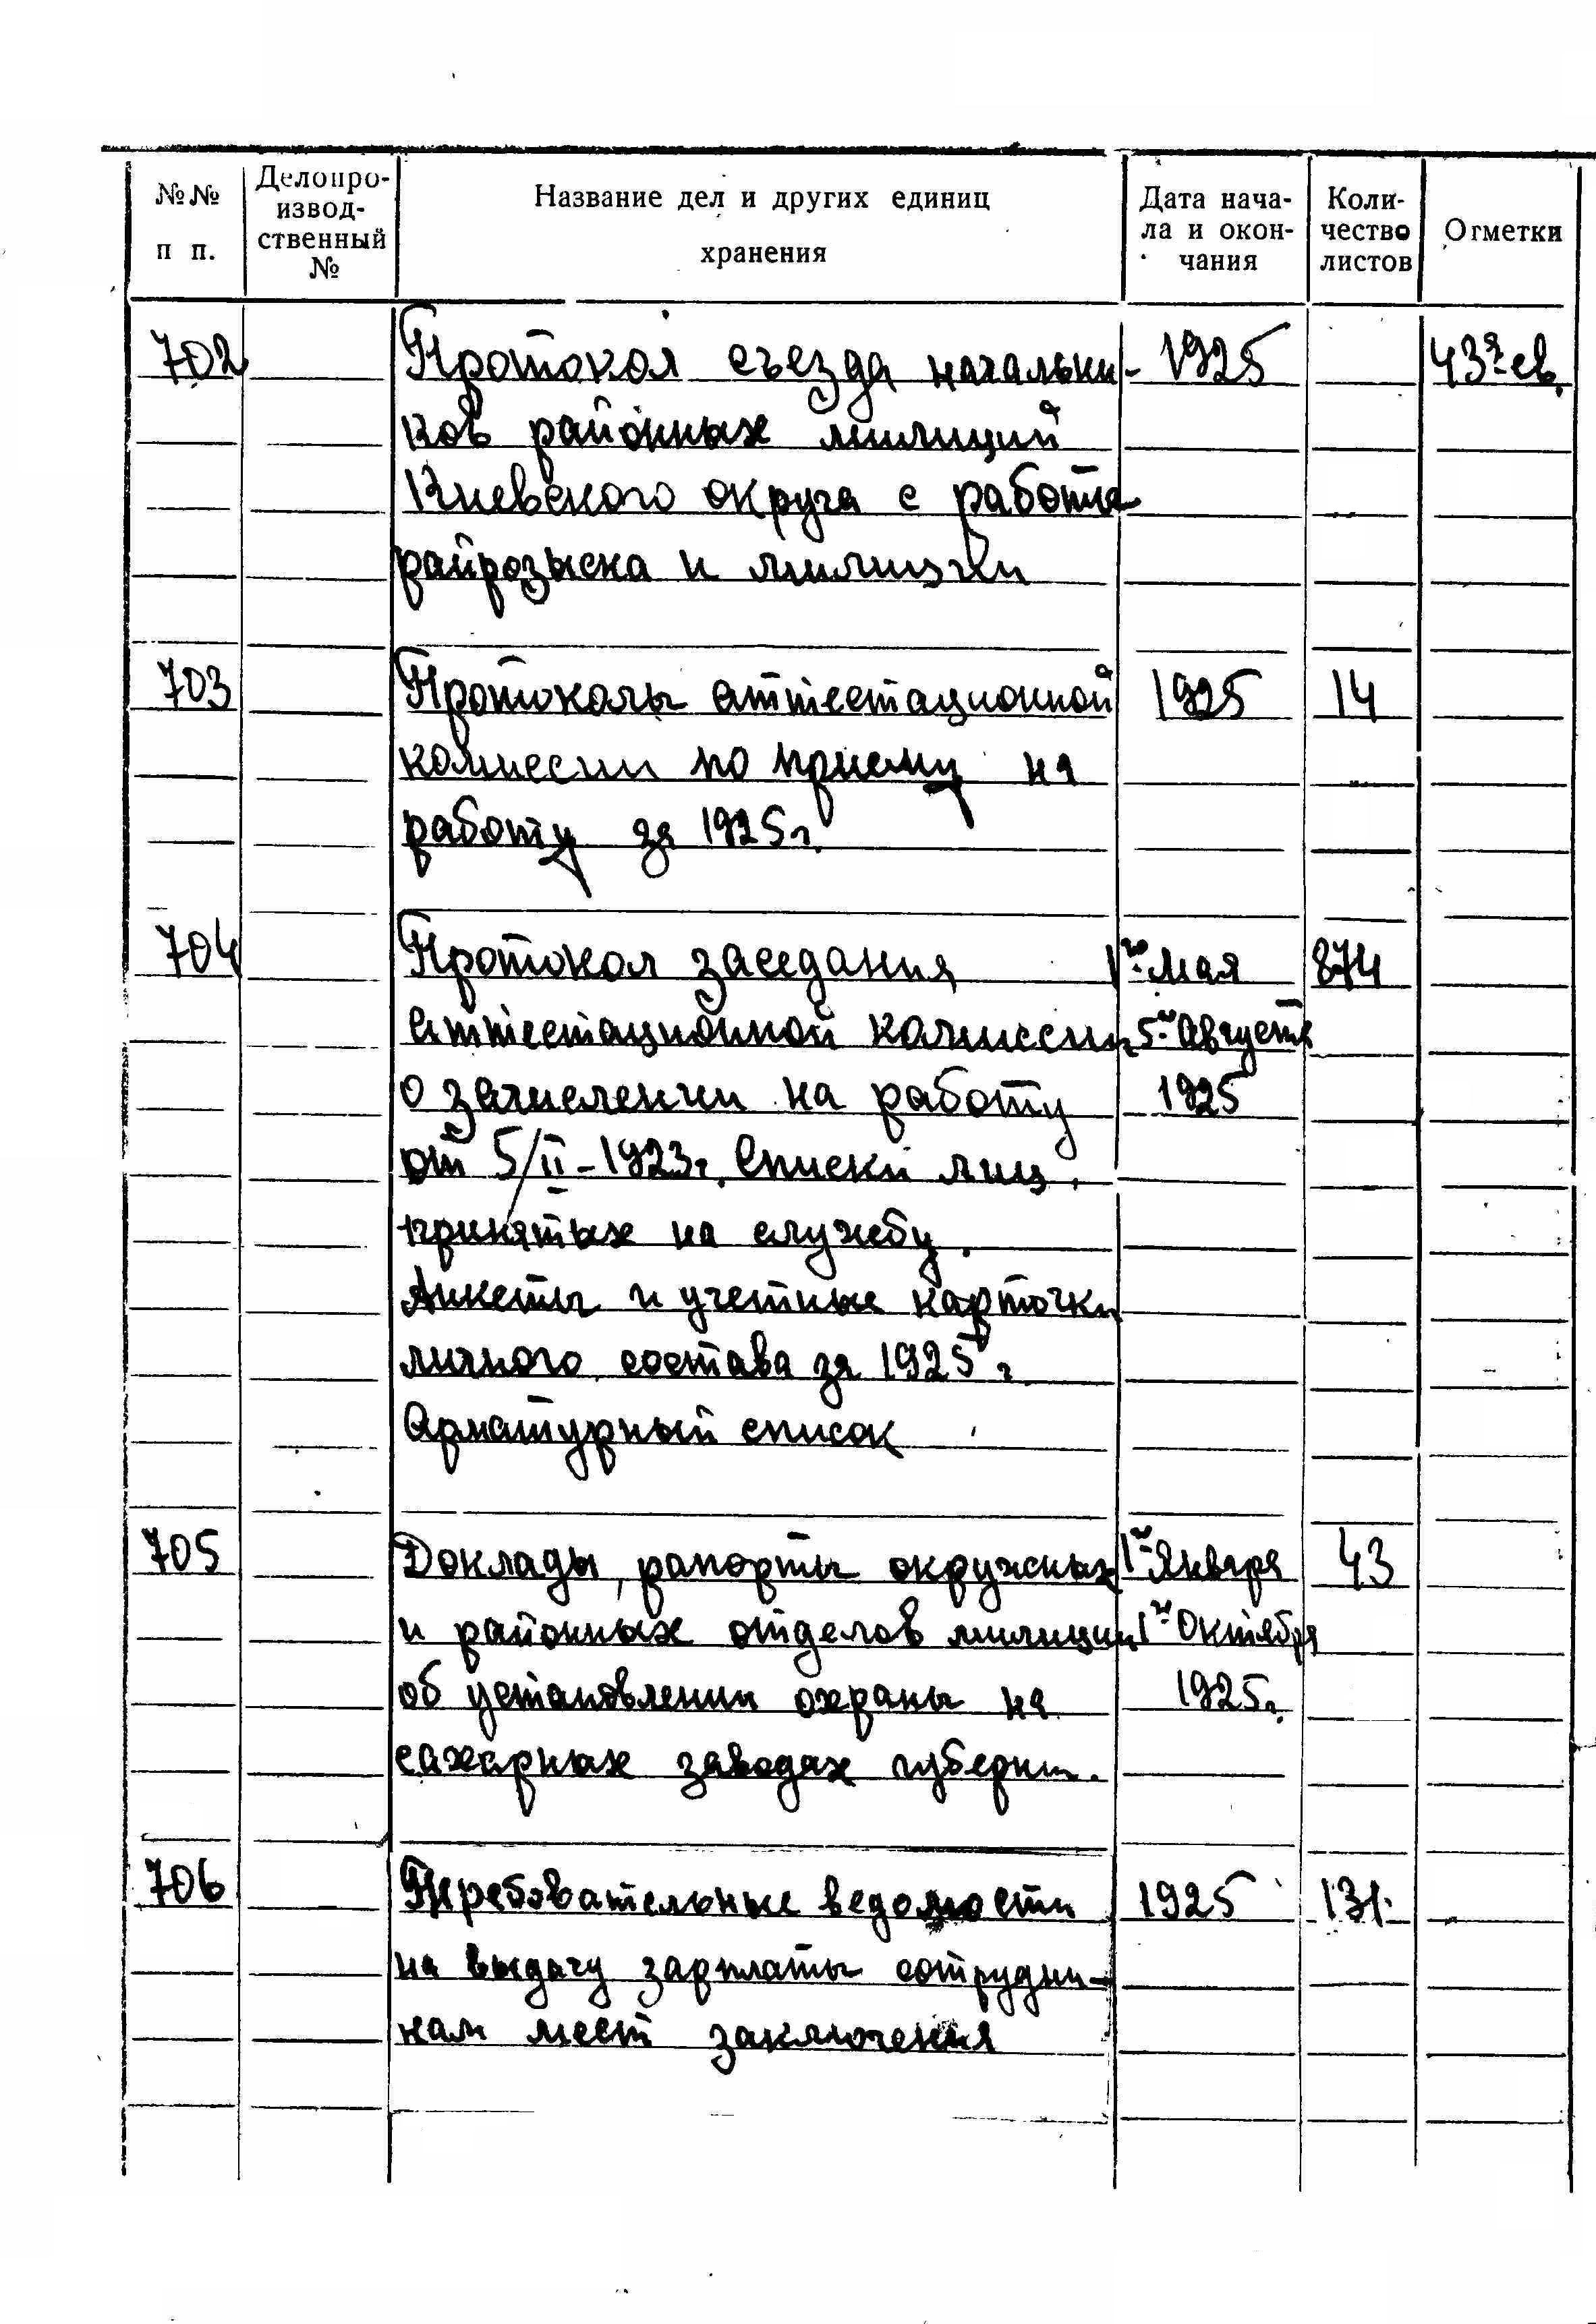 №№ п п. Делопроизводственный № Название дел и других единиц хранения Дата начала и окончания Количество листов Отметки
702 Протокол съезда начальни- 1925
ков районных милиций
Киевского округа с работе
райрозыска и милиции
703 Протоколы аттестационной 1925 14
комиссии по приему на
работу за 1925г.
704 Протокол заседания 1го мая 874
аттестационной комиссии 5го Августа
о зачислении на работу 1925
от 5/II-1923г. Списки лиц,
принятых на службу.
Анкеты и учетные карточки
личного состава за 1925 г.
Арматурный список
705 Доклады, рапорты окружных 1го Января 43
и районных отделов милиции 1го Октября
об установлении охраны на 1925г.
сахарных заводах губерни.
706 Требовательные ведомости 1925 131.
на выдачу зарплаты сотрудни-
кам мест заключения